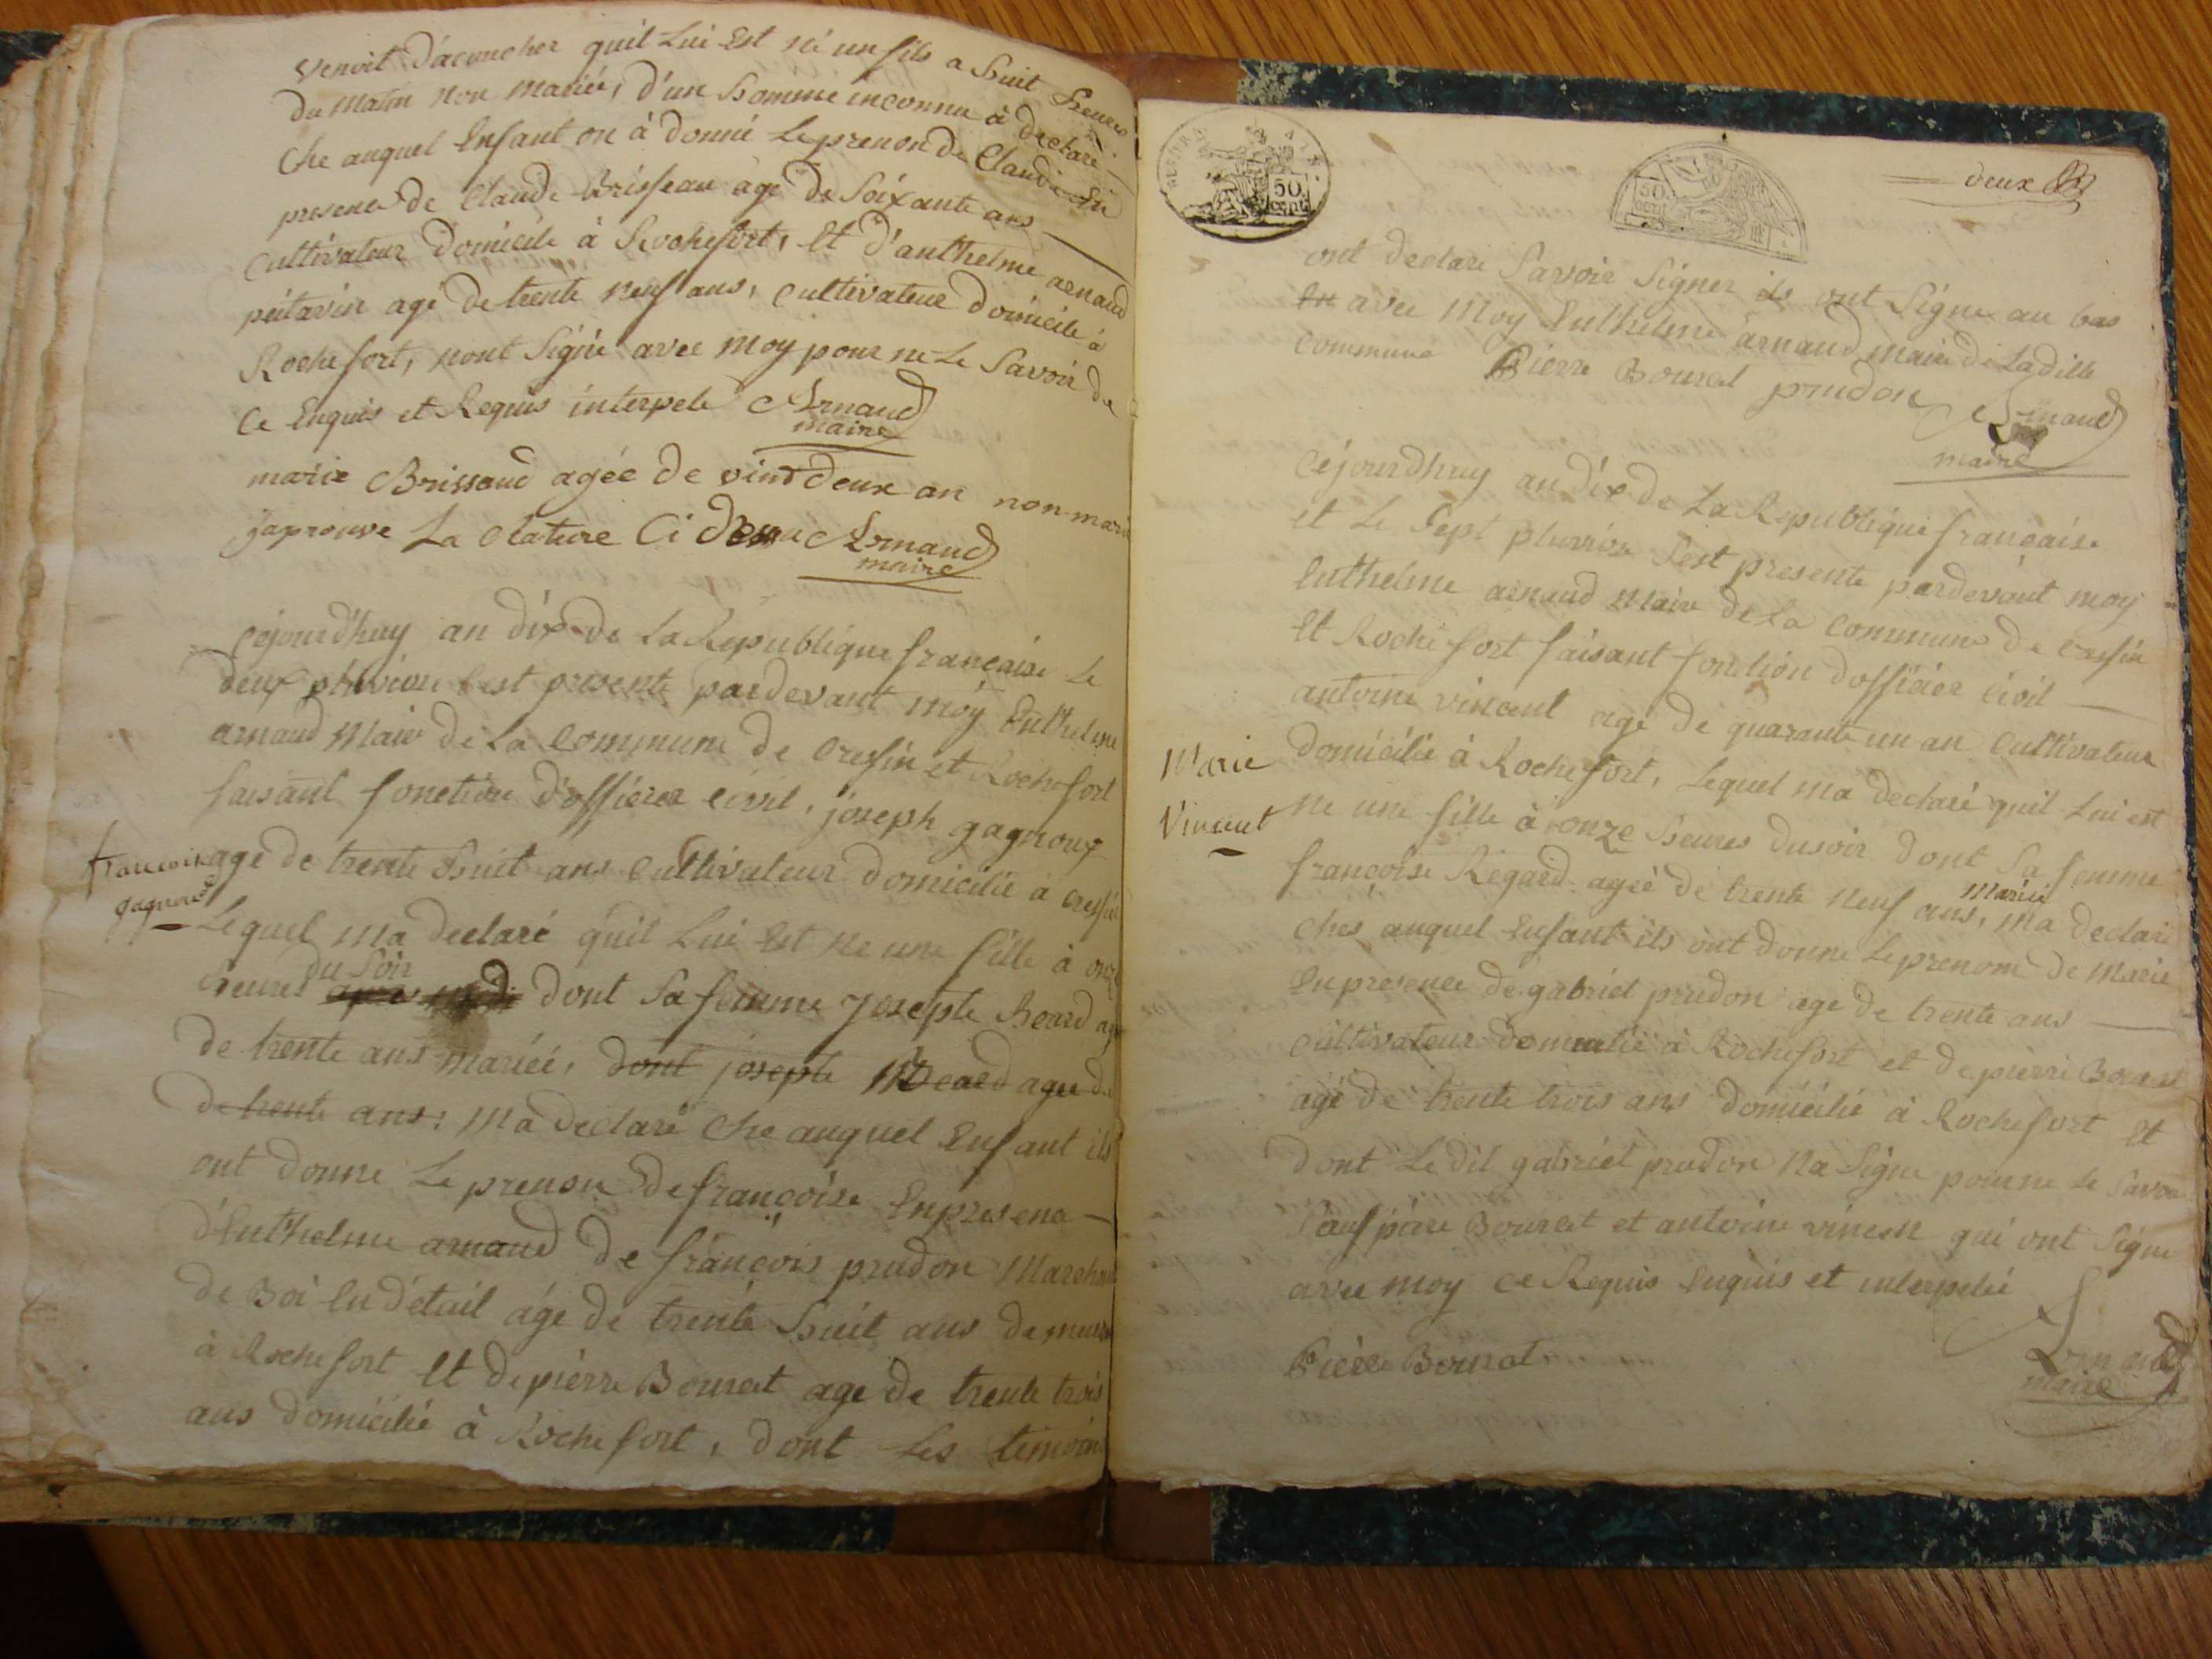 venoit d'acoucher quil Lui Est né un fils a huit heures
du matin non mariée, d'un homme inconnu à declaré
che auquel Enfant on à donné Le prenon de Claude En
presence de Claude Brisseau agé de Soixante ans
Cultivateur domicile à Rochefort, Et d'anthelme arnaud
peitavin agé de trente neuf ans, cultivateur domicile à
Rochefort, nont Signé avec moy pour ne Le Savoir de
Ce Enquis et Requis interpele Arnaud
maire
marie Brissaud agée de vint deux an non marie
japrouve La Clature Ci desu Arnaud
maire
Cejourdhuy an dix de La Republique francaise Le
deux pluviose Sest presente pardevant moy Enthelme
arnaud Maire de La Commune de Cressin et Rochefort
faisant fonction d'officier civil, joseph gagnoux
francoise
gagnoux
agé de trente huit ans Cultivateur domicilie à Cressin
Lequel ma declaré quil Lui Est ne une fille à onze
du Soir
heures apres midi dont Sa femme Josepte heard agee
de trente ans mariéé, dont josepte heard agee de
de trente ans: ma declaré Che auquel Enfant ils
ont donne Le prenon de françoise En presence
d'Enthelme arnaud de françois prudon Marchand
de Boi En détail agé de trente huit ans demeurant
à Rochefort Et de piérre Bourcet age de trente trois
ans domicilié à Rochefort, dont Les temoins
50
cent
50
cent
deux
ont declaré Savoir Signer ils ont Signe au bas
En avec Moy Enthelme arnaud maire de Ladille
Commune Pierre Bourcet prudon Arnaud
maire
Cejourdhuy an dix de La Republique française
et Le Sept pluviose Sest presente pardevant moy
Enthelme arnaud Maire de La Commune de Cressin
Et Rochefort faisant fonction dofficier Civil
antoine vincent agé de quarante un an Cultivateur
Marie
Vincent
domicilié à Rochefort, Lequel ma declaré quil Lui est
ne une fille à onze heures du soir dont Sa femme
françoise Regard agéé de trente neuf ans, ma declaré
Mariéé
Ches auquel Enfant ils ont donne Le prenom de Marie
En presence de gabriel prudon age de trente ans
cultivateur domicilié à Rochefort et de pierre Bourcet
agé de trente trois ans domicilié à Rochefort Et
dont Le dit gabriel prudon Na Signe pour ne Le Savoir
Sauf piere Bourcet et antoine vincent qui ont Signe
avec moy ce Requis Enquis et interpelé
Pierre Bourcet
Arnaud
maire